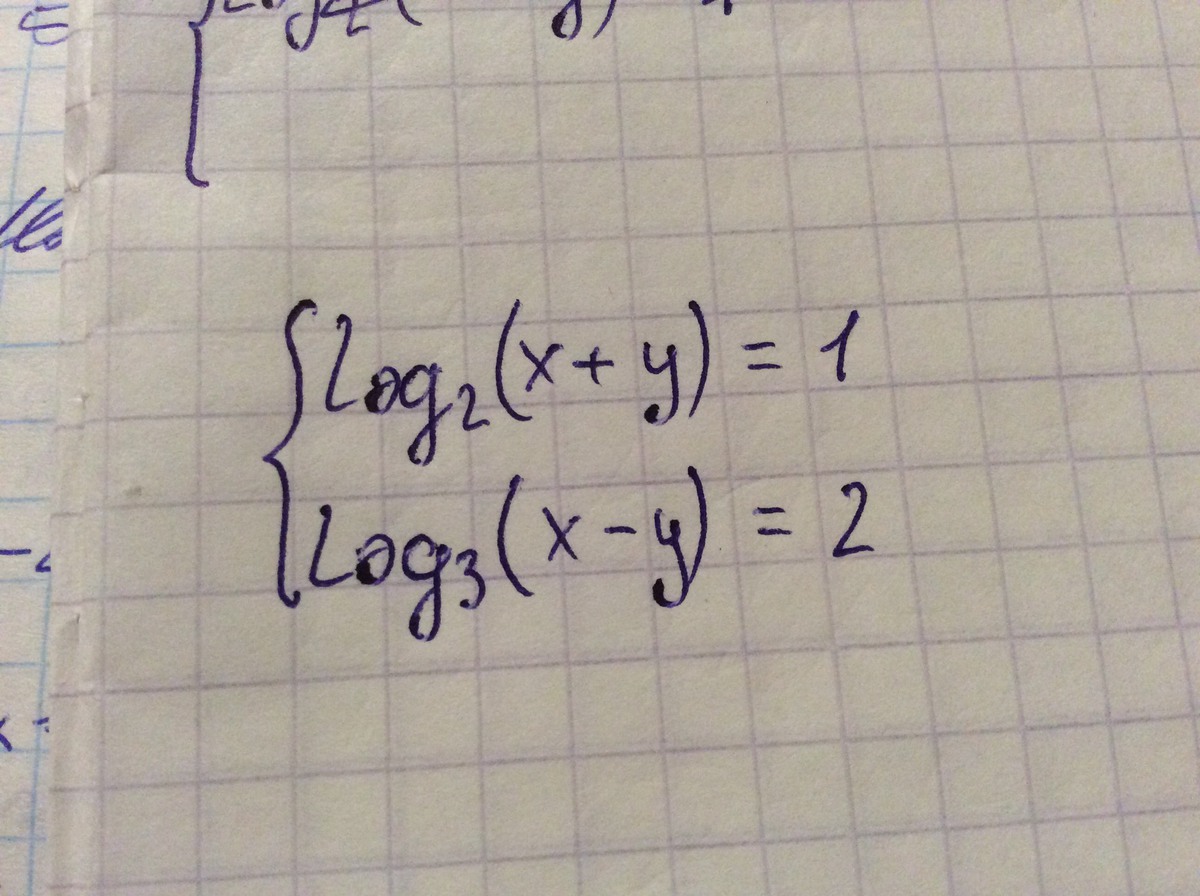 log₂(x+y) = 1
log₃(x-y) = 2